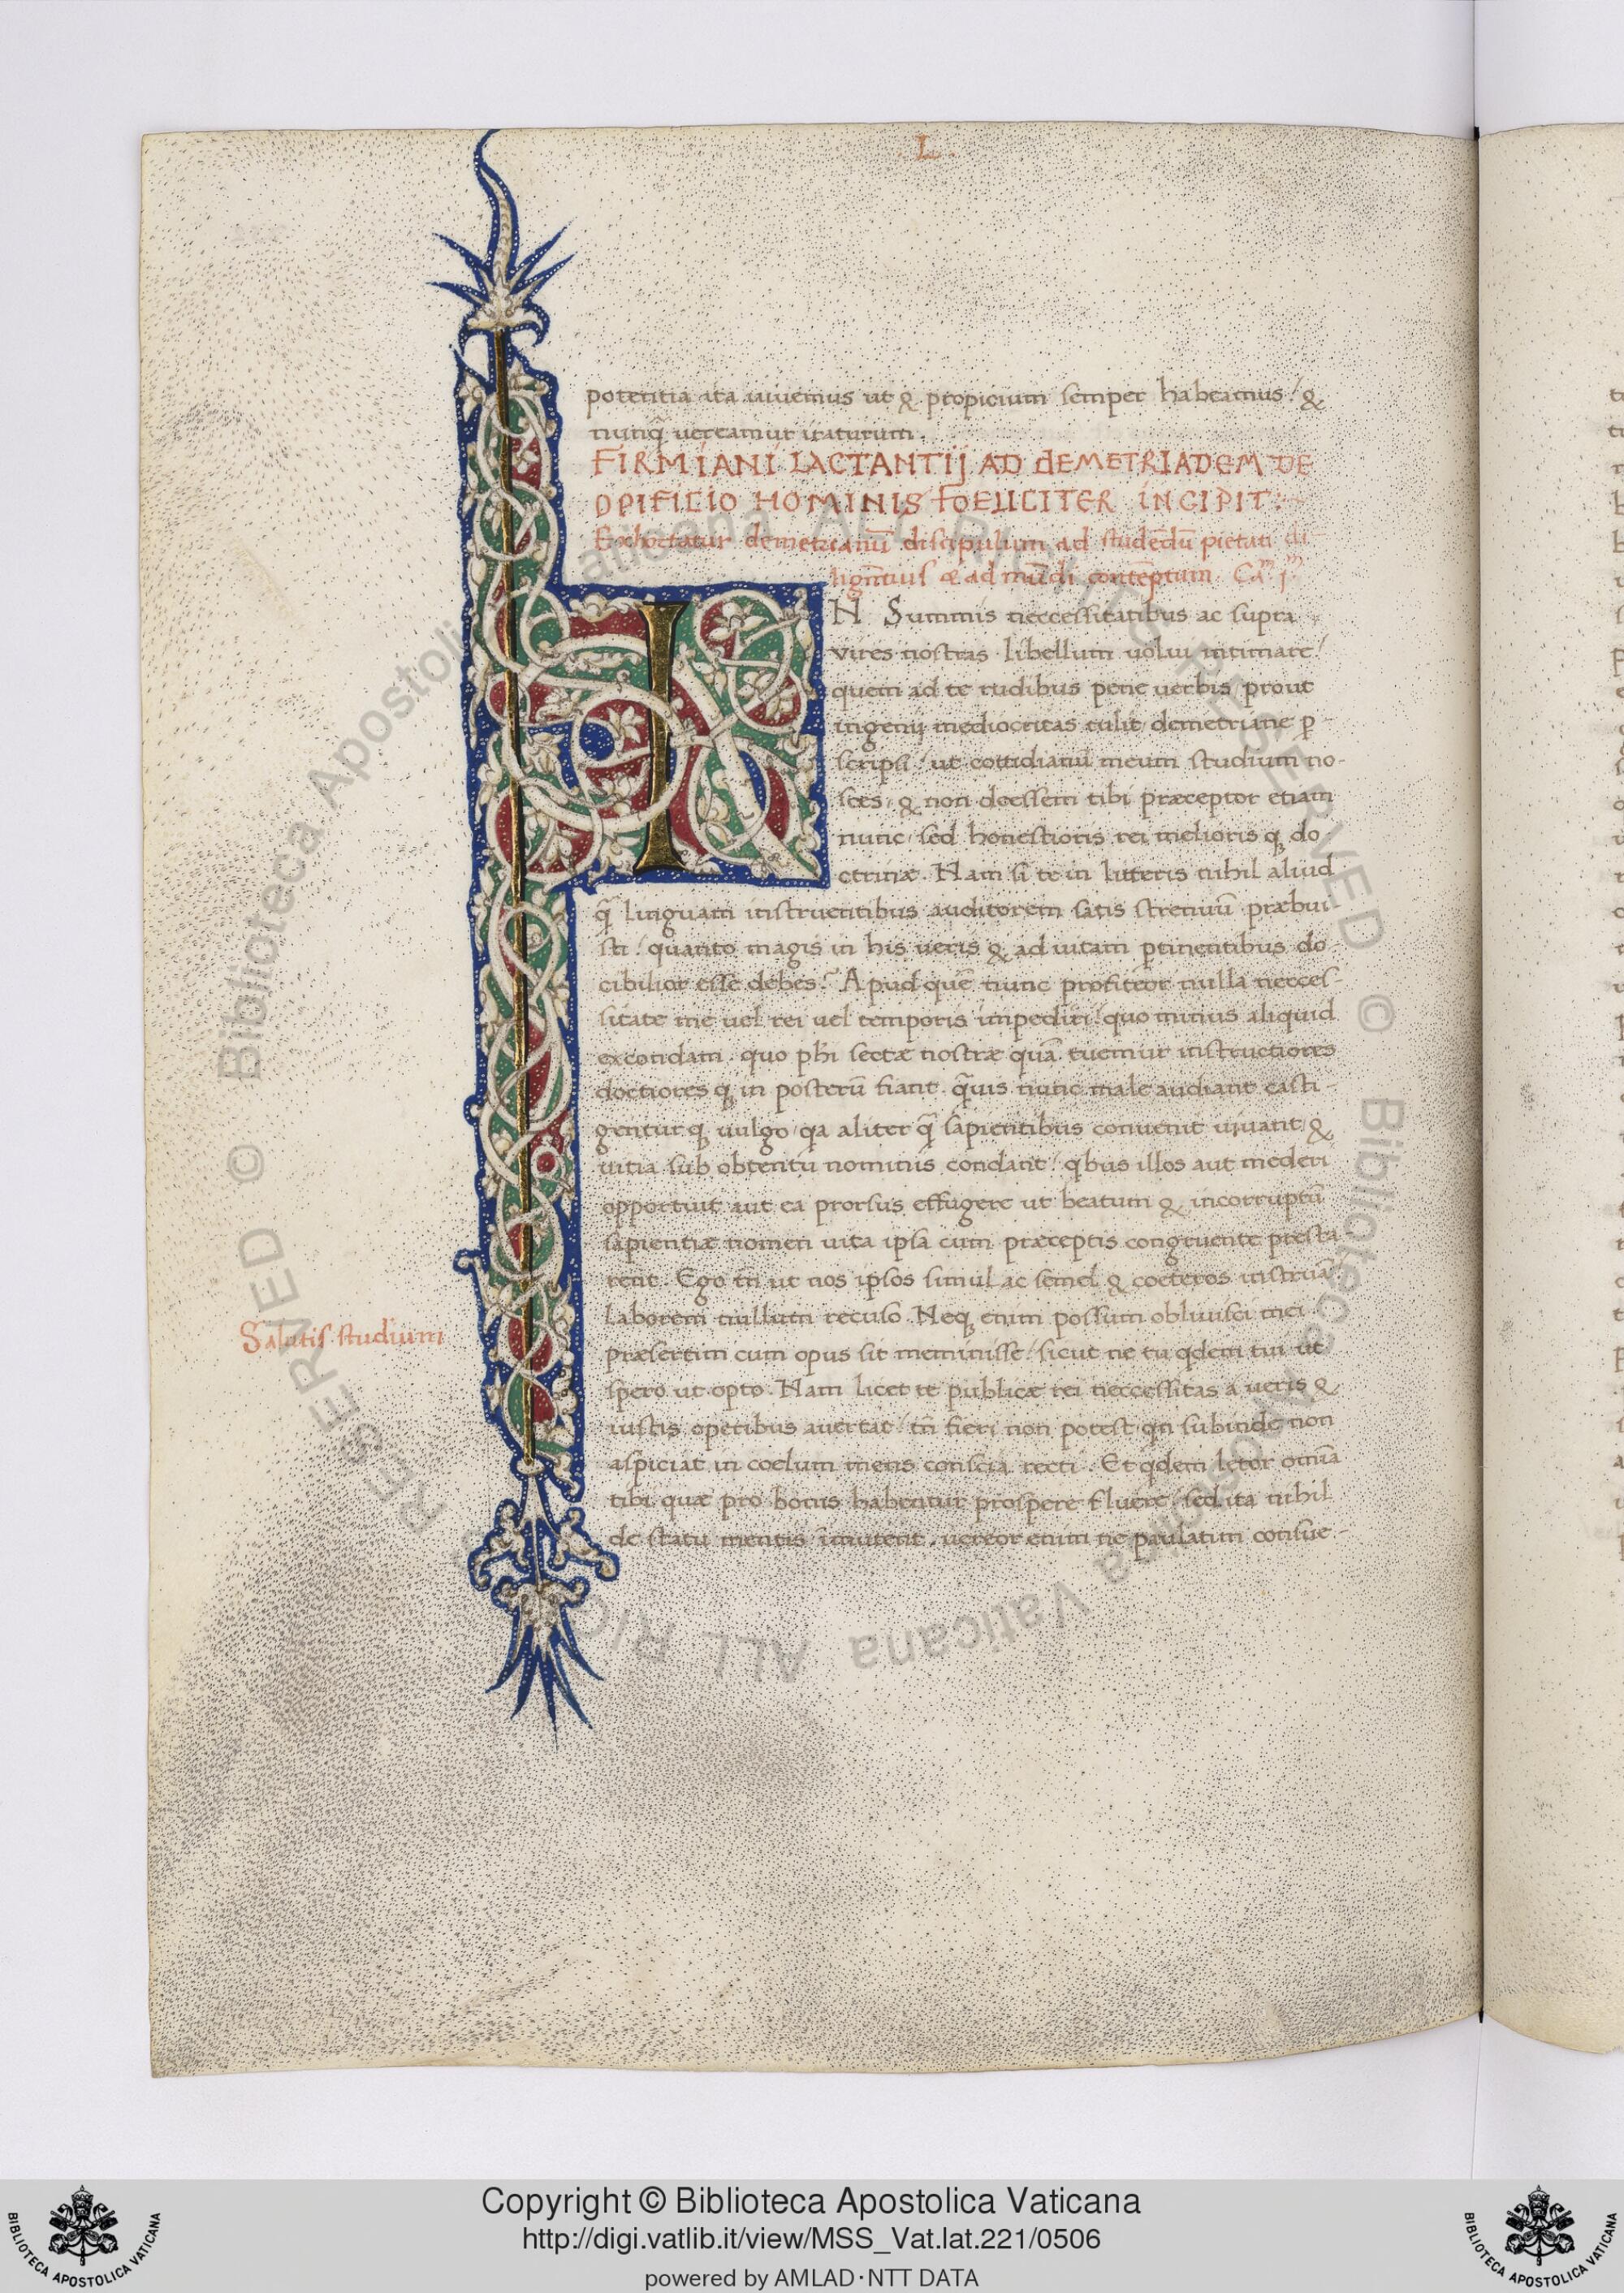 L.
potentia ita uiuemus ut & propicium semper habeamus / &
nunq̃ uereamur iraturum.
FIRMIANI LACTANTIJ AD dEMETRIADEM DE
OPIFILIO HOMINIS FOELICITER INCIPIT:
Exhortatur demetrianũ discipulum ad studẽdũ pietati di
ligñtius & ad mũdi contẽptum. Cam jm
IN Summis neccessitatibus ac supra
vires nostras libellum uolui intimare /
quem ad te rudibus pene uerbis prout
ingenij mediocritas tulit demetriane p̱
scripsi / ut cottidianũ meum studium no-
sces / & non deessem tibi præceptor etiam
nunc / sed honestioris rei melioris q; do-
ctrinæ. Nam si te in litteris nihil aliud
q̃ linguam instruentibus auditorem satis strenuũ præbui
sti / quanto magis in his ueris & ad uitam p̱tinentibus do
cibilior esse debes? Apud quẽ nunc profiteor nulla necces-
sitate me uel rei uel temporis impediri / quo minus aliquid
excondam. quo phi sectæ nostræ quã tuemur instructiores
doctiores q; in posterũ fiant. q̃uis nunc male audiant casti-
gentur q; uulgo / qa aliter q̃ sapientibus conuenit uiuant / &
uitia sub obtentu nominis condant / qbus illos aut mederi
opportuit aut ea prorsus effugere ut beatum & incorruptũ
sapientiæ nomen uita ipsa cum præceptis congruente presta
rent. Ego tñ ut nos ipsos simul ac semel & coeteros instruã
laborem nullum recuso. Neq; enim possum obliuisci mei
Salutis studium
præsertim cum opus sit meminisse / sicut ne tu qdem tui ut
spero ut opto. Nam licet te publicæ rei neccessitas a ueris &
iustis operibus auertat / tñ fieri non potest qn subinde non
aspiciat in coelum mens conscia recti. Et qdem lętor omĩa
tibi quæ pro bonis habentur prospere fluere / sed ita nihil
de statu mentis ĩmutent. uereor enim ne paulatim consue-
Copyright © Biblioteca Apostolica Vaticana
http://digi.vatlib.it/view/MSS_Vat.lat.221/0506
powered by AMLAD·NTT DATA
BIBLIOTECA APOSTOLICA VATICANA
BIBLIOTECA APOSTOLICA VATICANA
© Biblioteca Apostolica Vaticana ALL RIGHTS RESERVED © Biblioteca Apostolica Vaticana ALL RIGHTS RESERVED